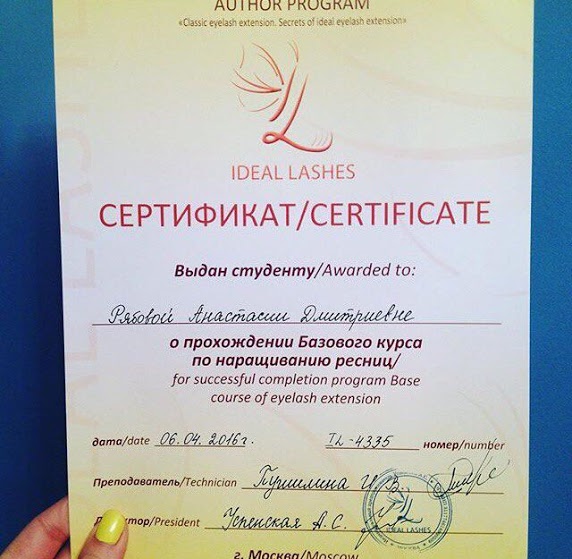 AUTHOR PROGRAM
«Classic eyelash extension. Secrets of ideal eyelash extension»
IDEAL LASHES
СЕРТИФИКАТ/CERTIFICATE
Выдан студенту/Awarded to:
Рябовой Анастасии Дмитриевне
о прохождении Базового курса
по наращиванию ресниц/
for successful completion program Base
course of eyelash extension
дата/date 06.04.2016г. IL-4335 номер/number
Преподаватель/Technician Пушилина И.В.
/President Успенская А.С.
IDEAL LASHES
г. Москва/Moscow